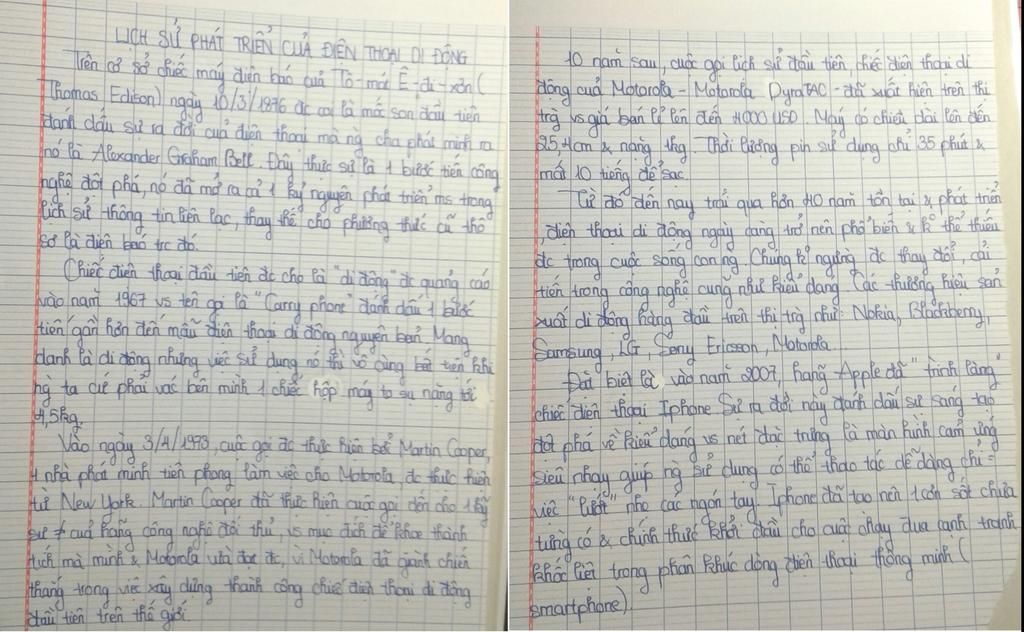 LỊCH SỬ PHÁT TRIỂN CỦA ĐIỆN THOẠI DI ĐỘNG
Trên cơ sở chiếc máy điện báo của Tô-mát Ê-đi-xơn (
Thomas Edison) ngày 10/3/1976 đc coi là mốc son đầu tiên
đánh dấu sự ra đời của điện thoại mà ng cha phát minh ra
nó là Alexander Graham Bell. Đây thực sự là 1 bước tiến công
nghệ đột phá, nó đã mở ra cả 1 kỷ nguyên phát triển ms trong
lịch sử thông tin liên lạc, thay thế cho phương thức cũ thô
sơ là điện báo trc đó.
Chiếc điện thoại đầu tiên đc cho là "di động" đc quảng cáo
vào năm 1967 vs tên gọi là "Carry phone" đánh dấu 1 bước
tiến gần hơn đến mẫu điện thoại di động nguyên bản. Mang
danh là di động nhưng việc sử dụng nó thì vô cùng bất tiện khi
ng ta cứ phải vác bên mình 1 chiếc hộp máy to sụ nặng tới
4,5kg.
Vào ngày 3/4/1973, cuộc gọi đc thực hiện bởi Martin Cooper,
1 nhà phát minh tiên phong làm việc cho Motorola, đc thực hiện
từ New York. Martin Cooper đã thực hiện cuộc gọi đến cho 1 kỹ
sư ≠ của hãng công nghệ đối thủ, vs mục đích để khoe thành
tích mà mình & Motorola vừa đạt đc, vì Motorola đã giành chiến
thắng trong việc xây dựng thành công chiếc điện thoại di động
đầu tiên trên thế giới.
10 năm sau, cuộc gọi lịch sử đầu tiên, chiếc điện thoại di
động của Motorola - Motorola DynaTAC - đã xuất hiện trên thị
trg vs giá bán lẻ lên đến 4000 USD. Máy có chiều dài lên đến
25,4cm & nặng 1kg. Thời lượng pin sử dụng chỉ 35 phút &
mất 10 tiếng để sạc.
Từ đó đến nay trải qua hơn 40 năm tồn tại & phát triển
, điện thoại di động ngày càng trở nên phổ biến & k thể thiếu
đc trong cuộc sống con ng. Chúng k ngừng đc thay đổi, cải
tiến trong công nghệ cũng như kiểu dáng. Các thương hiệu sản
xuất di động hàng đầu trên thị trg như: Nokia, Blackberry,
Samsung, LG, Sony Ericsson, Motorola...
Đặc biệt là vào năm 2007, hãng Apple đã "trình làng"
chiếc điện thoại Iphone. Sự ra đời này đánh dấu sự sáng tạo
đột phá về kiểu dáng vs nét đặc trưng là màn hình cảm ứng
siêu nhạy giúp ng sử dụng có thể thao tác dễ dàng chỉ =
việc "lướt" nhẹ các ngón tay. Iphone đã tạo nên 1 cơn sốt chưa
từng có & chính thức khởi đầu cho cuộc chạy đua cạnh tranh
khốc liệt trong phân khúc dòng điện thoại thông minh (
smartphone).